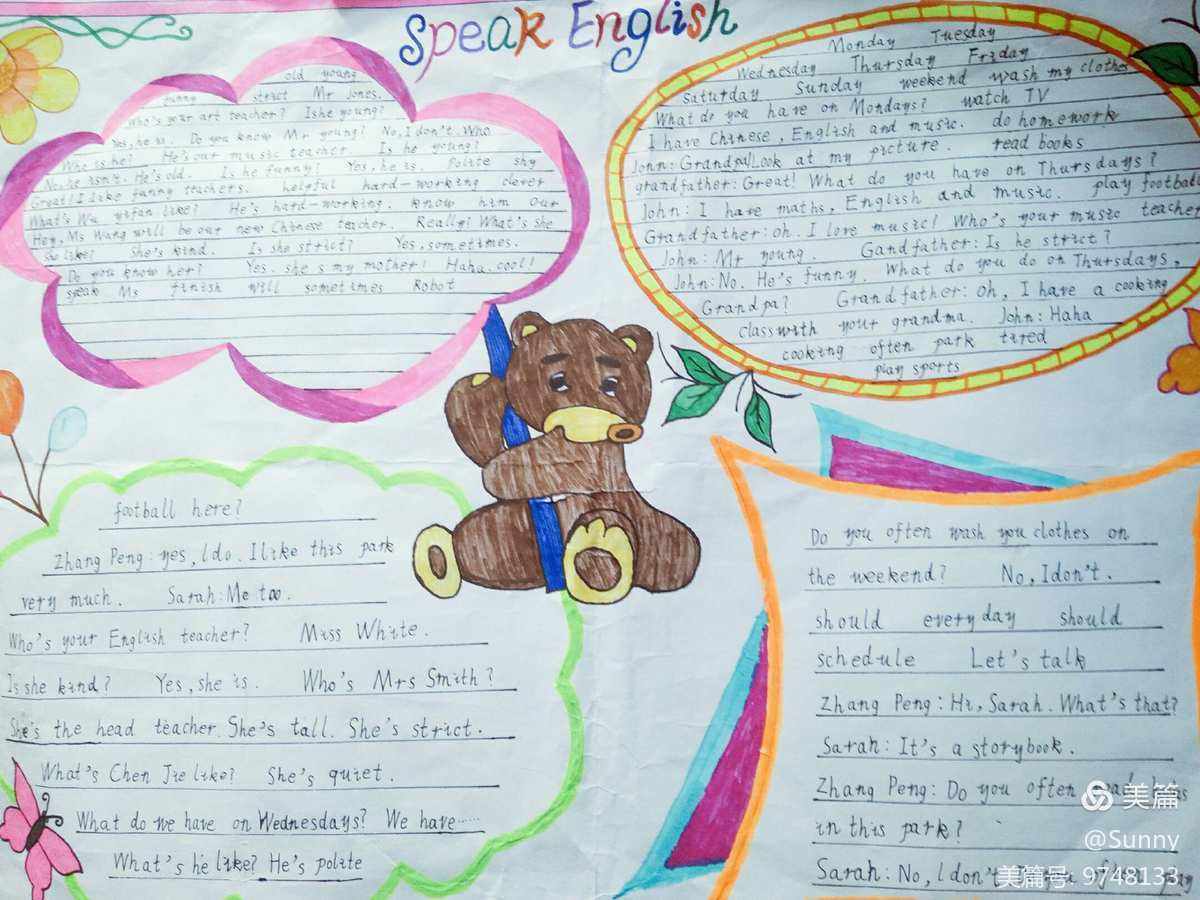 Speak English
old young
funny strict Mr Jones.
Who's your art teacher? Is he young?
Yes, he is. Do you know Mr young? No, I don't. Who
Who is he? He's our music teacher. Is he young?
No, he isn't. He's old. Is he funny? Yes, he is. Polite shy
Great! I like funny teachers. helpful hard-working clever
What's Wu yifan like? He's hard-working. know him our
Hey, Ms Wang will be our new Chinese teacher. Really? What's she
she like? She's kind. Is she strict? Yes, sometimes.
Do you know her? Yes. she s my mother! Haha, cool!
speak Ms finish will sometimes Robot
Monday Tuesday
Wednesday Thursday Friday
saturday Sunday weekend wash my clothes
What do you have on Mondays? watch TV
I have Chinese, English and music. do homework
John: Grandpa! Look at my picture. read books
grandfather: Great! What do you have on Thursdays?
John: I have maths, English and music. play football
Grandfather: oh. I love music! Who's your music teacher
John: Mr young. Gandfather: Is he strict?
John: No. He's funny. What do you do on Thursdays,
Grandpa? Grandfather: Oh, I have a cooking
class with your grandma. John: Haha
cooking often park tired
play sports
football here?
Zhang Peng: yes, I do. I like this park
very much. Sarah: Me too.
Who's your English teacher? Miss White.
Is she kind? Yes, she is. Who's Mrs Smith?
She's the head teacher. She's tall. She's strict.
What's Chen Jie like? She's quiet.
What do we have on Wednesdays? We have……
What's he like? He's polite
Do you often wash you clothes on
the weekend? No, I don't.
should every day should
schedule Let's talk
Zhang Peng: Hi, Sarah. What's that?
Sarah: It's a storybook.
Zhang Peng: Do you often
in this park?
Sarah: No, I don't
美篇
@Sunny
美篇号 9748133